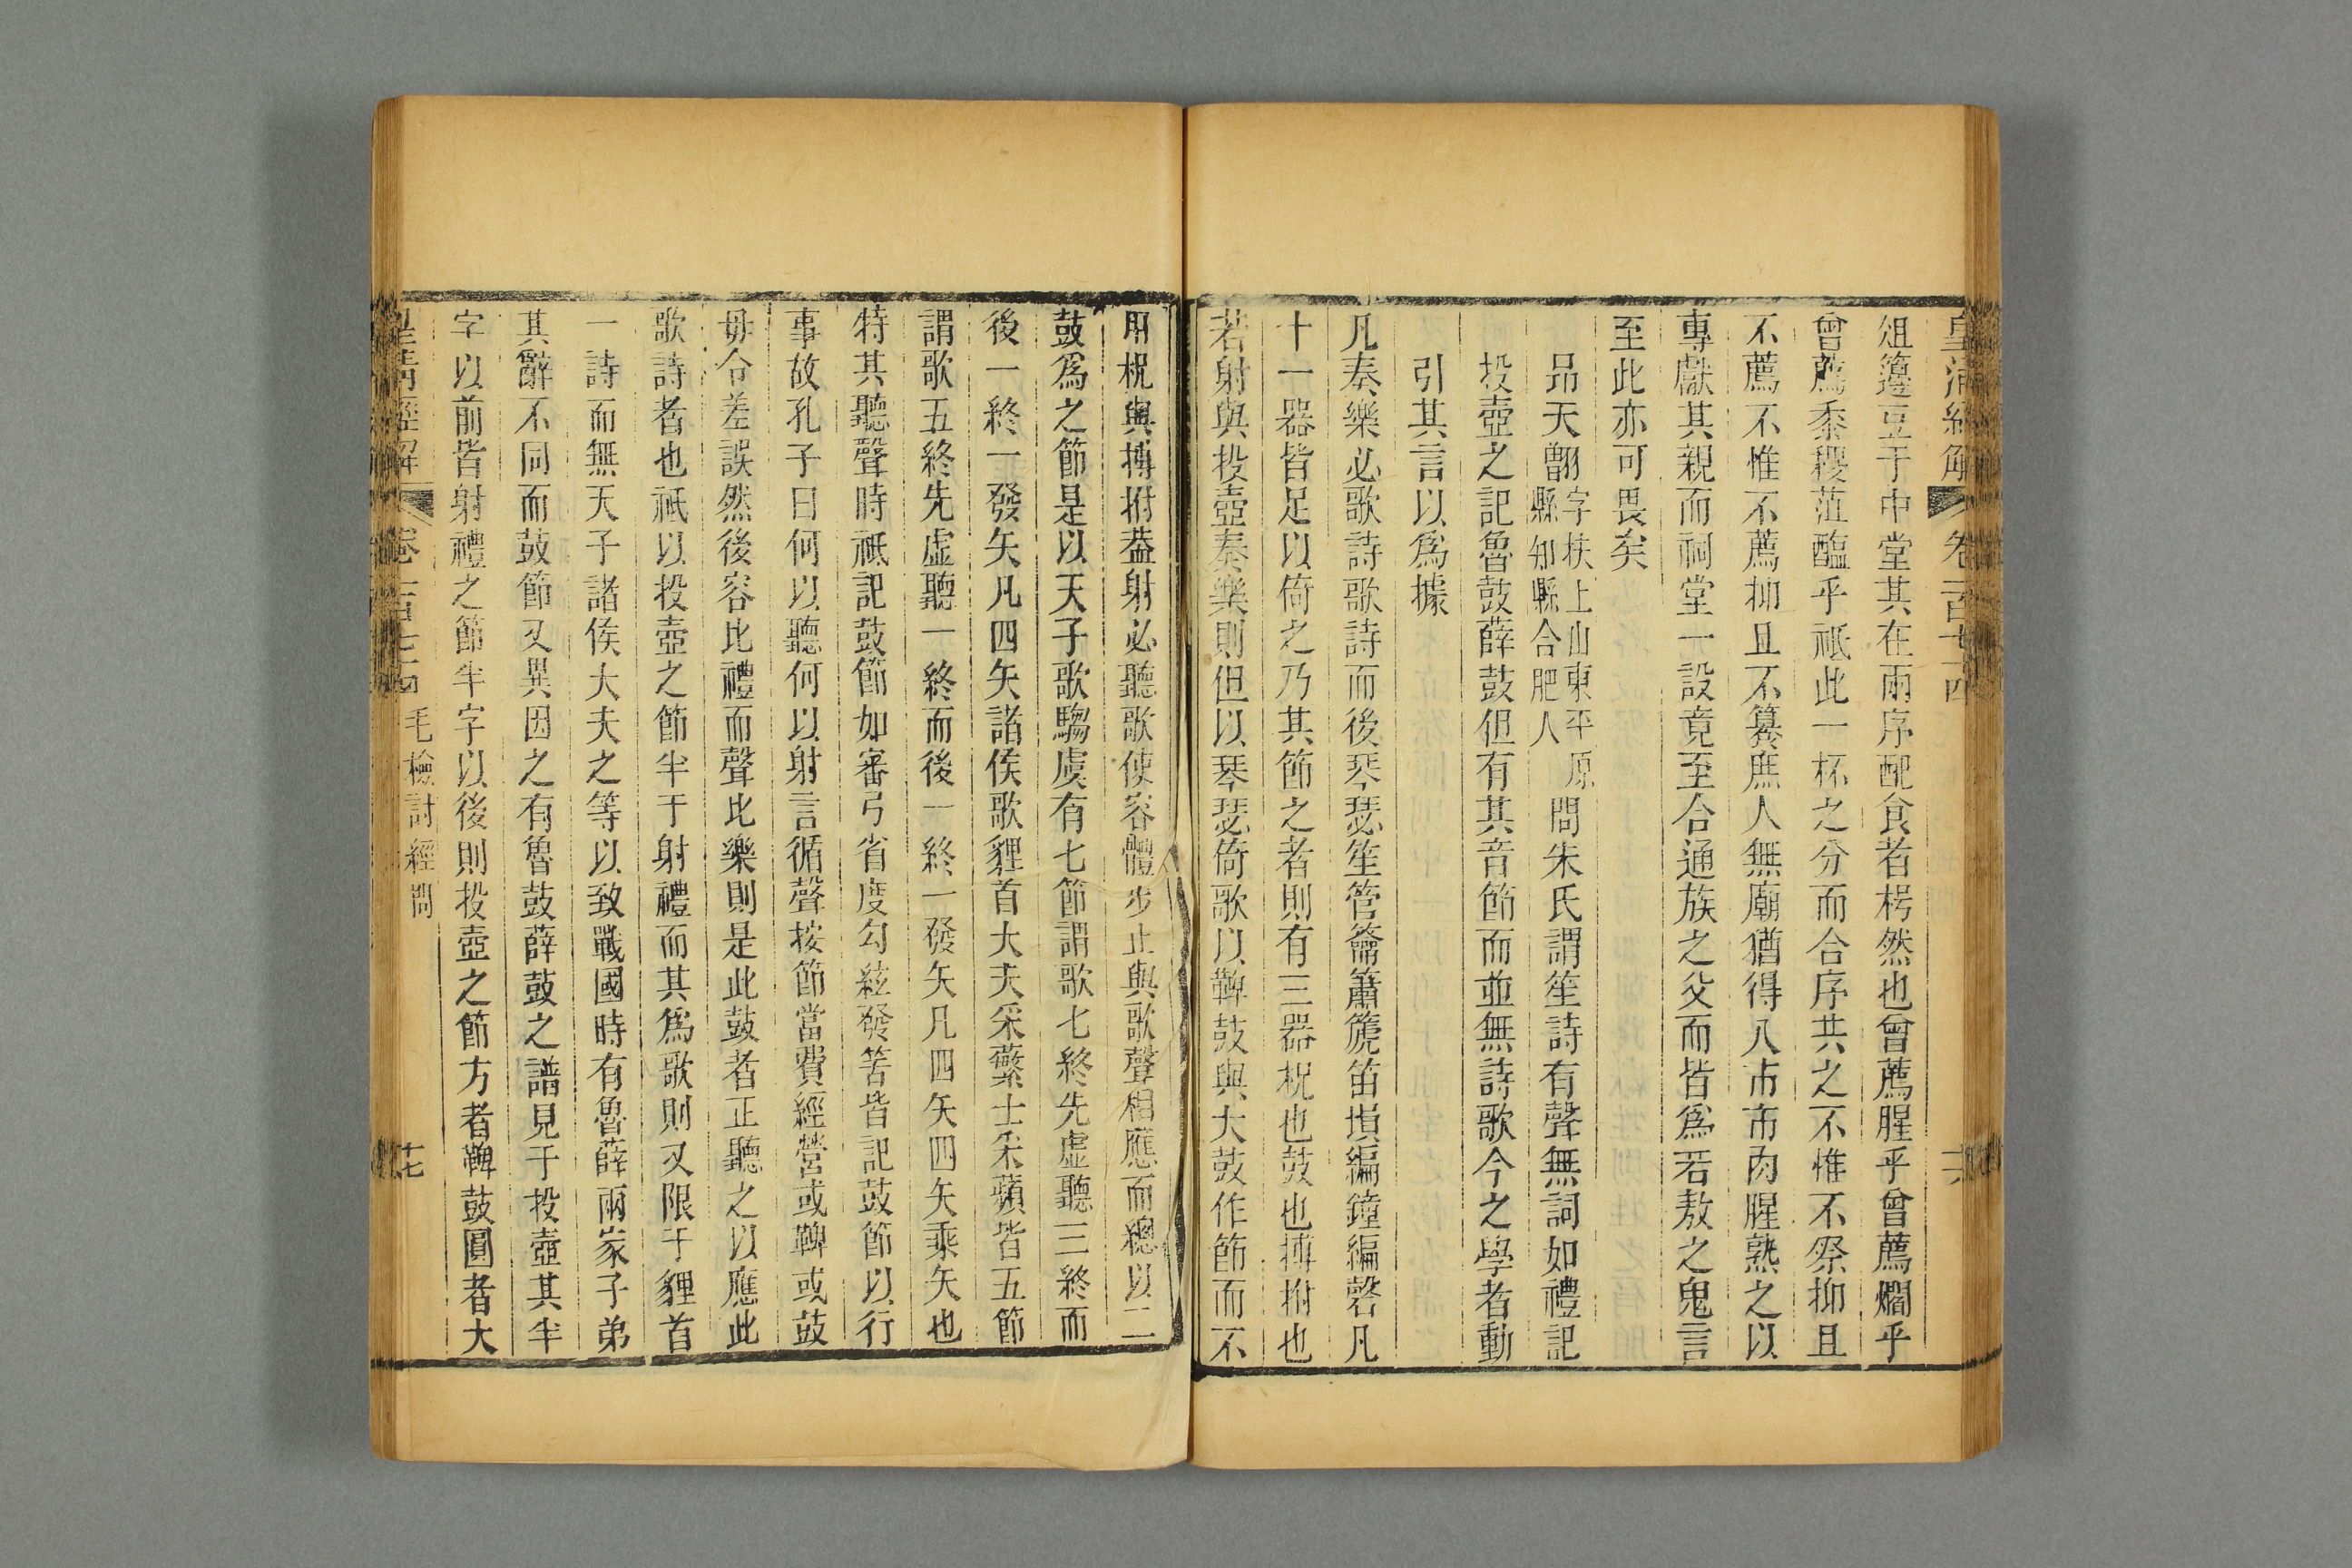 皇清經解 卷一百七十四 十六
俎籩豆于中堂其在兩序配食者枵然也曾薦腥乎曾薦爓乎
曾薦黍稷菹醢乎祗此一杯之分而合序共之不惟不祭抑且
不薦不惟不薦抑且不纂庶人無廟猶得入市市肉腥熟之以
專獻其親而祠堂一設竟至合通族之父而皆爲若敖之鬼言
至此亦可畏矣
昂天翮字扶上山東平原縣知縣合肥人問朱氏謂笙詩有聲無詞如禮記
投壺之記魯鼓薛鼓但有其音節而並無詩歌今之學者動
引其言以爲據
凡奏樂必歌詩歌詩而後琴瑟笙管籥簫篪笛塤編鐘編磬凡
十一器皆足以倚之乃其節之者則有三器柷也鼓也搏拊也
若射與投壺奏樂則但以琴瑟倚歌以鞞鼓與大鼓作節而不
用柷與搏拊葢射必聽歌使容體步止與歌聲相應而總以二
鼓爲之節是以天子歌騶虞有七節謂歌七終先虛聽三終而
後一終一發矢凡四矢諸侯歌貍首大夫采蘩士采蘋皆五節
謂歌五終先虛聽一終而後一終一發矢凡四矢四矢乘矢也
特其聽聲時祗記鼓節如審弓省度勾絃發筈皆記鼓節以行
事故孔子曰何以聽何以射言循聲按節當費經營或鞞或鼓
毋合差誤然後容比禮而聲比樂則是此鼓者正聽之以應此
歌詩者也祗以投壺之節半于射禮而其爲歌則又限于貍首
一詩而無天子諸侯大夫之等以致戰國時有魯薛兩家子弟
其辭不同而鼓節又異因之有魯鼓薛鼓之譜見于投壺其半
字以前皆射禮之節半字以後則投壺之節方者鞞鼓圓者大
皇清經解 卷一百七十四 毛檢討經問 十七